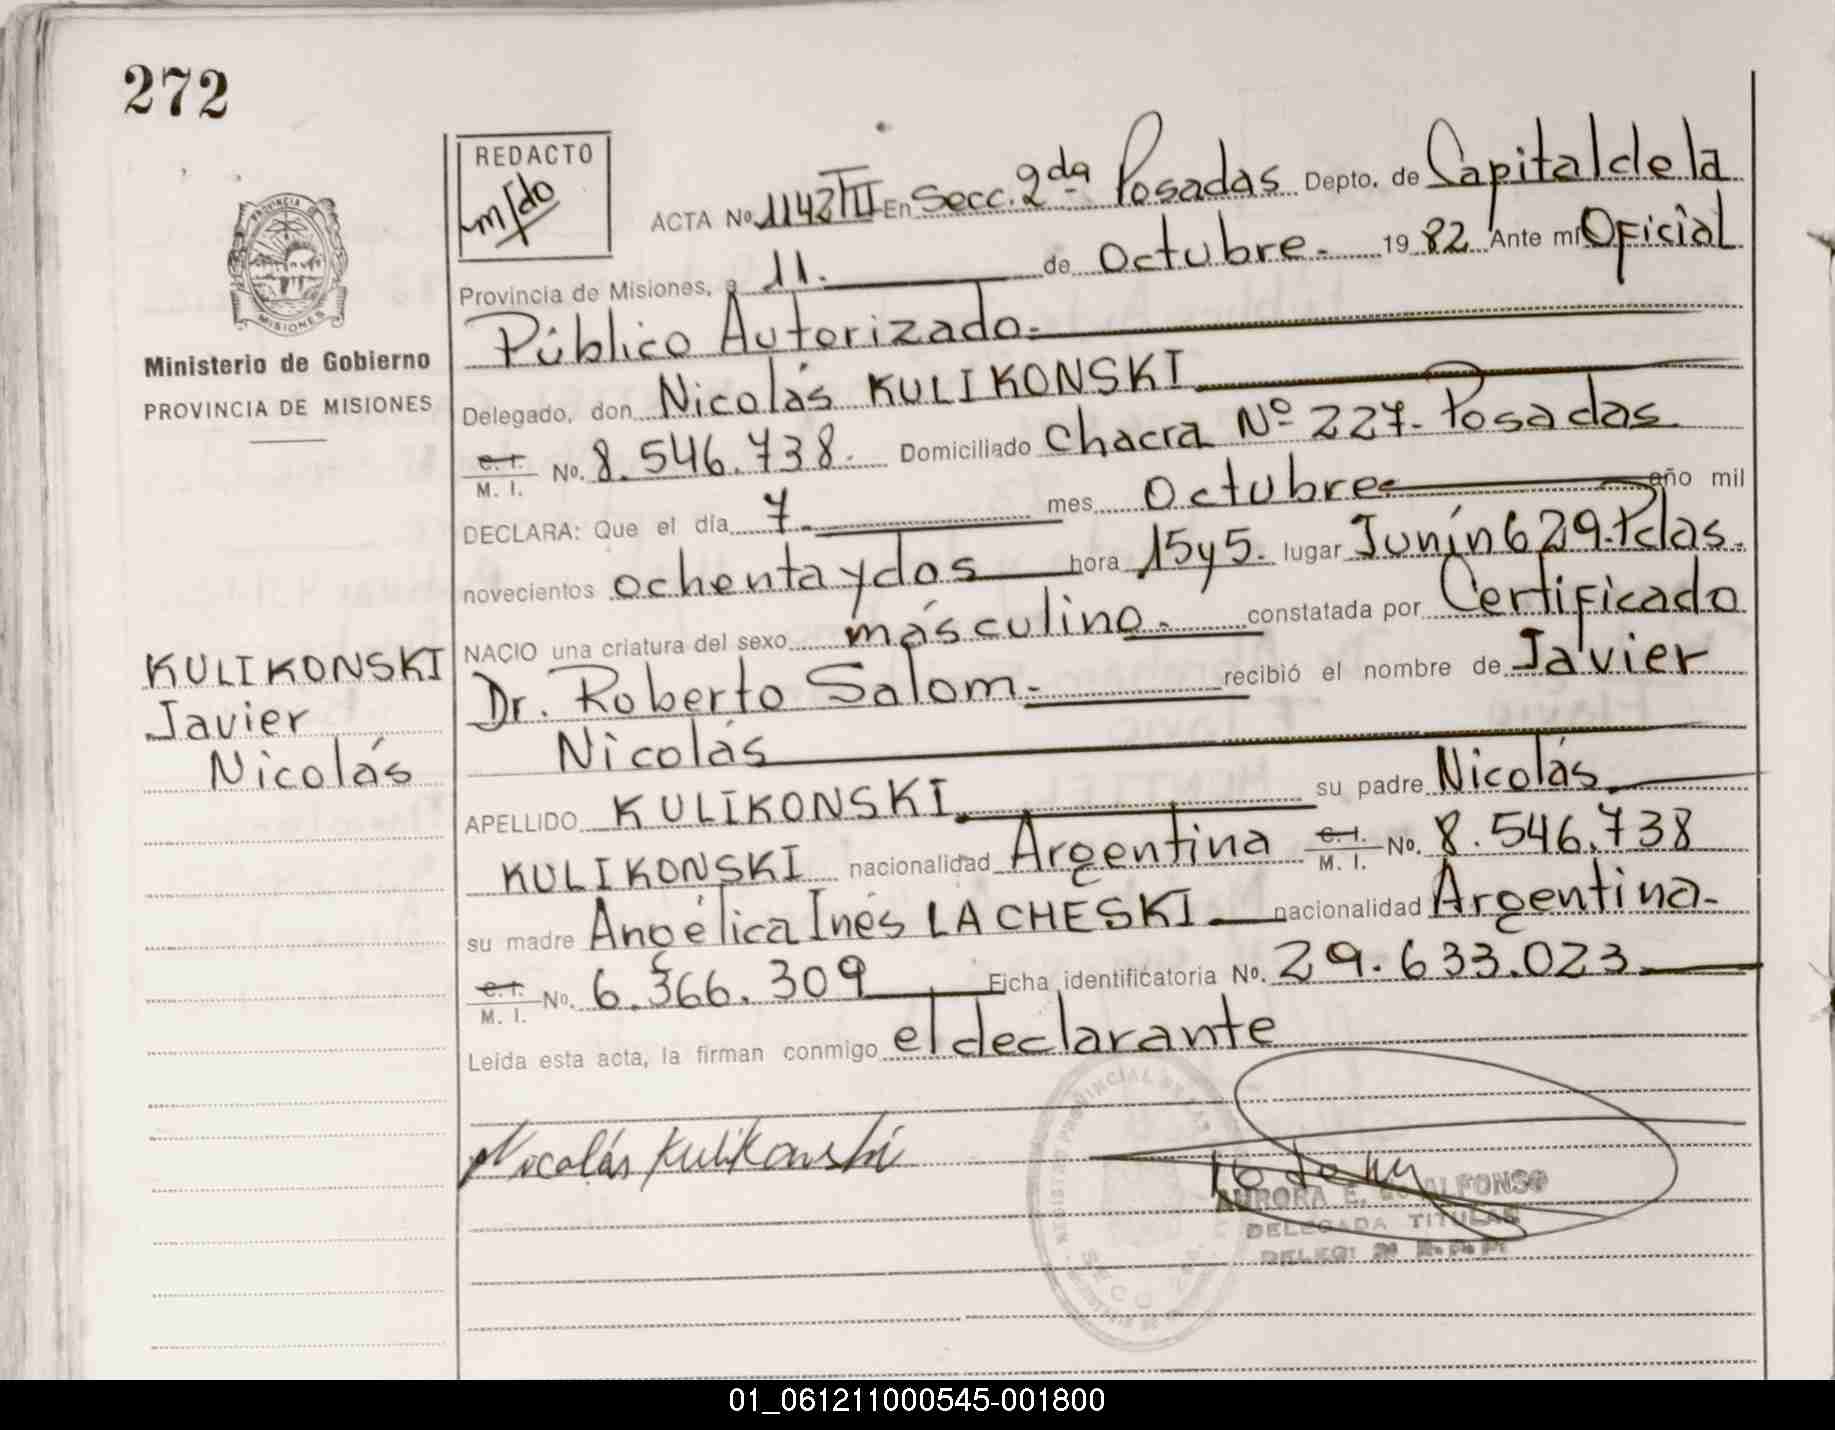 272
REDACTO
m/do
ACTA No. 1142 III En Secc. 2da Posadas Depto. de Capital de la
Provincia de Misiones, a 11.- de Octubre.- 19 82 Ante mí Oficial
Público Autorizado.-
PROVINCIA DE
MISIONES
Ministerio de Gobierno
PROVINCIA DE MISIONES
Delegado, don Nicolás KULIKONSKI
C. I. M. I. No. 8.546.738.- Domiciliado Chacra Nº 227.- Posadas
DECLARA: Que el día 7.- mes Octubre año mil
novecientos ochenta y dos hora 15 y 5. lugar Junín 629. Pdas.
NACIO una criatura del sexo másculino.- constatada por Certificado
Dr. Roberto Salom.- recibió el nombre de Javier
Nicolás
KULIKONSKI
Javier
Nicolás
APELLIDO KULIKONSKI su padre Nicolás
KULIKONSKI nacionalidad Argentina C. I. M. I. No. 8.546.738
su madre Angélica Inés LACHESKI nacionalidad Argentina.-
C. I. M. I. No. 6.366.309 Ficha identificatoria No. 29.633.023
Leída esta acta, la firman conmigo el declarante
Nicolás Kulikonski
AURORA E. ALFONSO
DELEGADA TITULAR
01_061211000545-001800